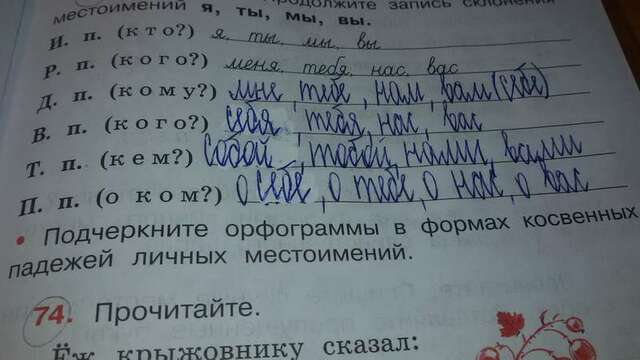 местоимений я, ты, мы, вы.
И. п. (кто?) я, ты, мы, вы
Р. п. (кого?) меня, тебя, нас, вас
Д. п. (кому?) мне, тебе, нам, вам (себе)
В. п. (кого?) себя, тебя, нас, вас
Т. п. (кем?) собой, тобой, нами, вами
П. п. (о ком?) о себе, о тебе, о нас, о вас
• Подчеркните орфограммы в формах косвенных
падежей личных местоимений.
74. Прочитайте.
Ёж крыжовнику сказал: